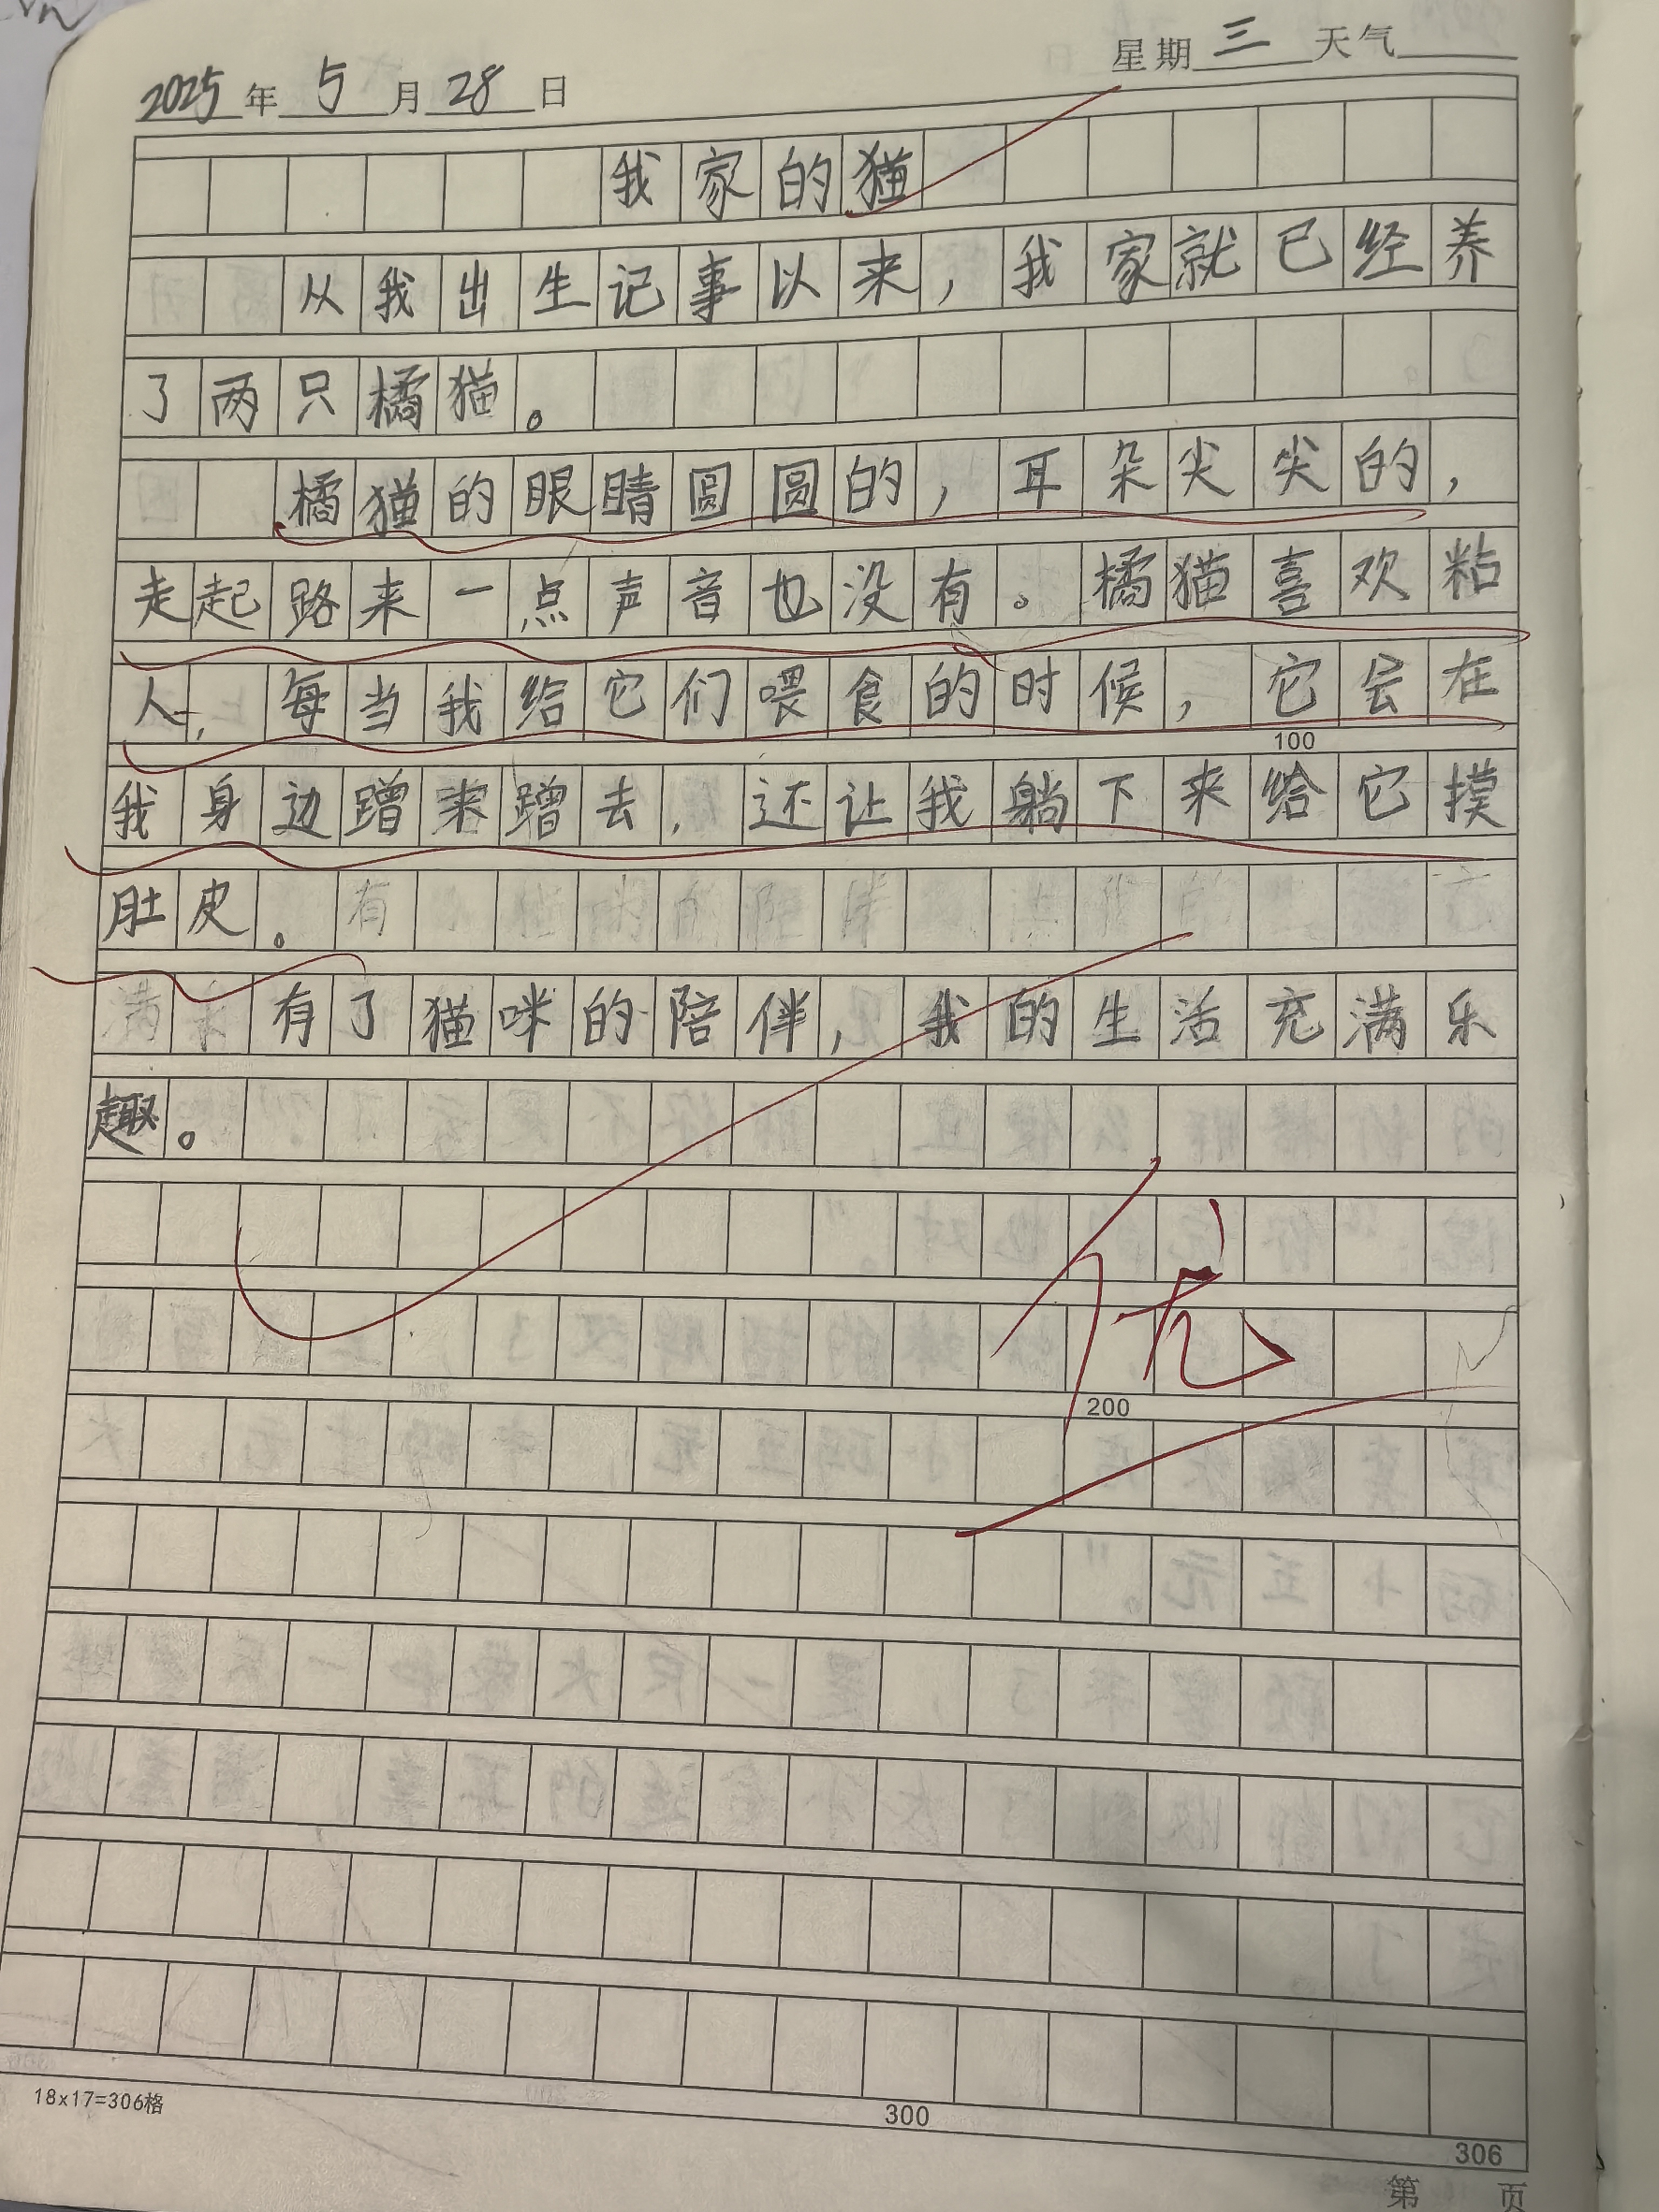 2025年5月28日 星期三 天气
我家的猫
从我出生记事以来，我家就已经养
了两只橘猫。
橘猫的眼睛圆圆的，耳朵尖尖的，
走起路来一点声音也没有。橘猫喜欢粘
人，每当我给它们喂食的时候，它会在
100
我身边蹭来蹭去，还让我躺下来给它摸
肚皮。
有了猫咪的陪伴，我的生活充满乐
趣。
优
200
18x17=306格
300
306
第 页